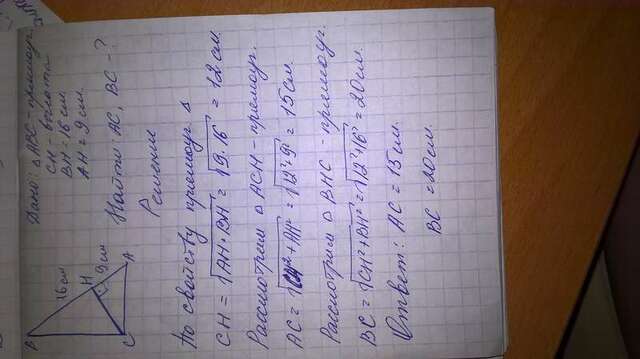 Дано: Δ ABC - прямоуг.
CH - высота
BH = 16 см.
AH = 9 см.
Найти: AC, BC - ?
Решение
B
16 см
H
9 см
A
C
По свойству прямоуг Δ
CH = √AH·BH = √9·16 = 12 см.
Рассмотрим Δ ACH - прямоуг.
AC = √CH²+AH² = √12²+9² = 15 см.
Рассмотрим Δ BHC - прямоуг.
BC = √CH²+BH² = √12²+16² = 20 см.
Ответ: AC = 15 см.
BC = 20 см.